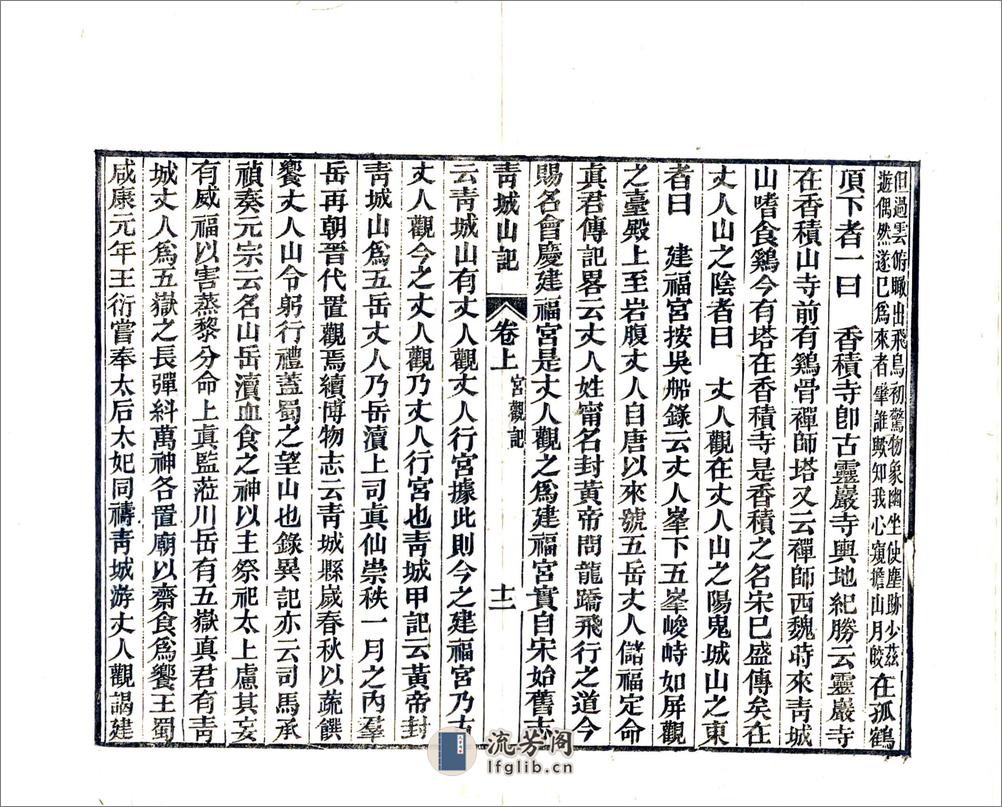 但過雲俯瞰出飛鳥初驚物象幽坐使塵跡少茲
遊偶然遂已爲來者肇誰歟知我心窺擔山月皎在孤鶴
項下者一曰　香積寺卽古靈巖寺輿地紀勝云靈巖寺
在香積山寺前有鷄骨禪師塔又云禪師西魏時來青城
山嗜食鷄今有塔在香積寺是香積之名宋已盛傳矣在
丈人山之陰者曰　丈人觀在丈人山之陽鬼城山之東
者曰　建福宮按吳船錄云丈人峯下五峯峻峙如屏觀
之臺殿上至岩腹丈人自唐以來號五岳丈人儲福定命
眞君傳記畧云丈人姓甯名封黃帝問龍蹻飛行之道今
賜名會慶建福宮是丈人觀之爲建福宮實自宋始舊志
青城山記　卷上　宮觀記　十二
云青城山有丈人觀丈人行宮據此則今之建福宮乃古
丈人觀今之丈人觀乃丈人行宮也青城甲記云黃帝封
青城山爲五岳丈人乃岳瀆上司眞仙崇秩一月之內羣
岳再朝晉代置觀焉續博物志云青城縣歲春秋以蔬饌
饗丈人山令躬行禮蓋蜀之望山也錄異記亦云司馬承
禎奏元宗云名山岳瀆血食之神以主祭祀太上慮其妄
有威福以害蒸黎分命上眞監蒞川岳有五嶽眞君有青
城丈人爲五嶽之長彈糾萬神各置廟以齋食爲饗王蜀
咸康元年王衍嘗奉太后太妃同禱青城游丈人觀謁建
流芳阁
lfglib.cn